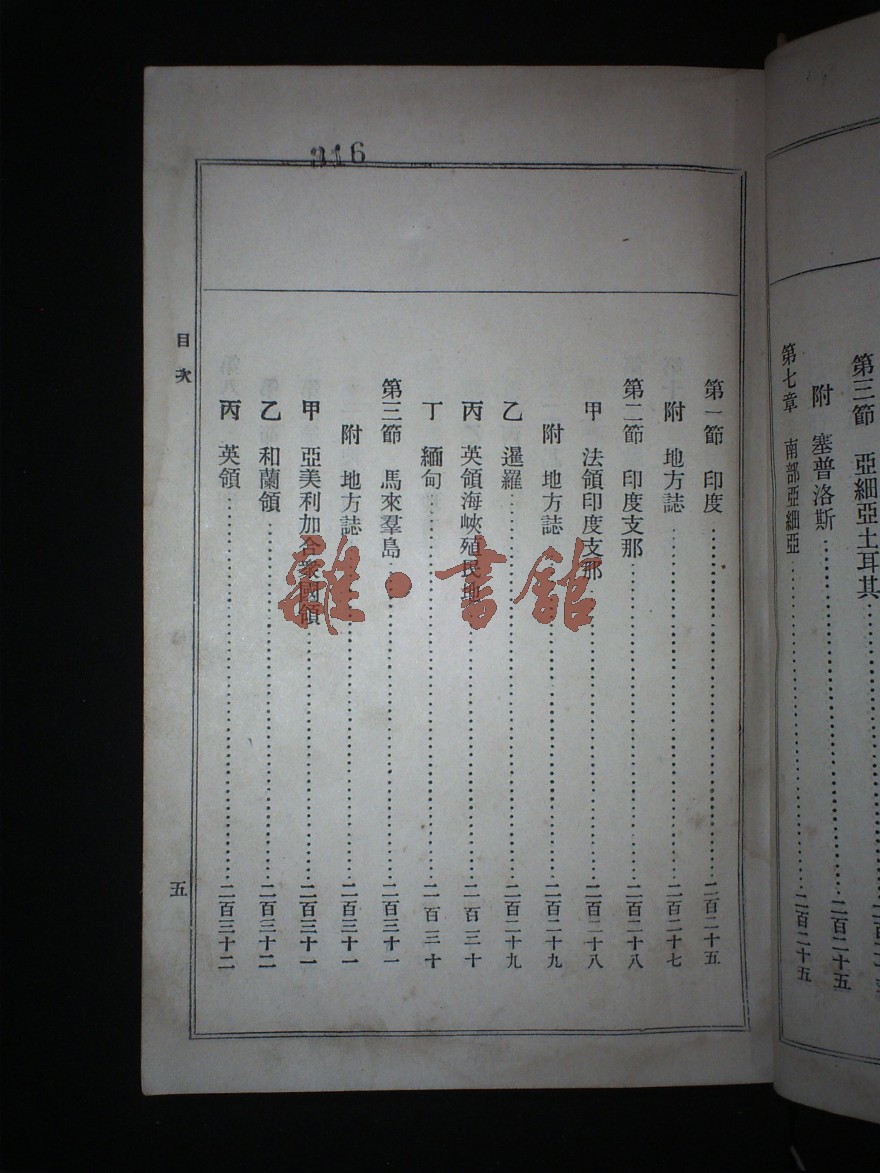 第三節 亞細亞土耳其
附 塞普洛斯 二百二十五
第七章 南部亞細亞 二百二十五
316
第一節 印度 二百二十五
附 地方誌 二百二十七
第二節 印度支那 二百二十八
甲 法領印度支那 二百二十八
附 地方誌 二百二十九
乙 暹羅 二百二十九
丙 英領海峽殖民地 二百三十
丁 緬甸 二百三十
第三節 馬來羣島 二百三十一
附 地方誌 二百三十一
甲 亞美利加合衆國領 二百三十一
乙 和蘭領 二百三十二
丙 英領 二百三十二
目次
五
雜·書館